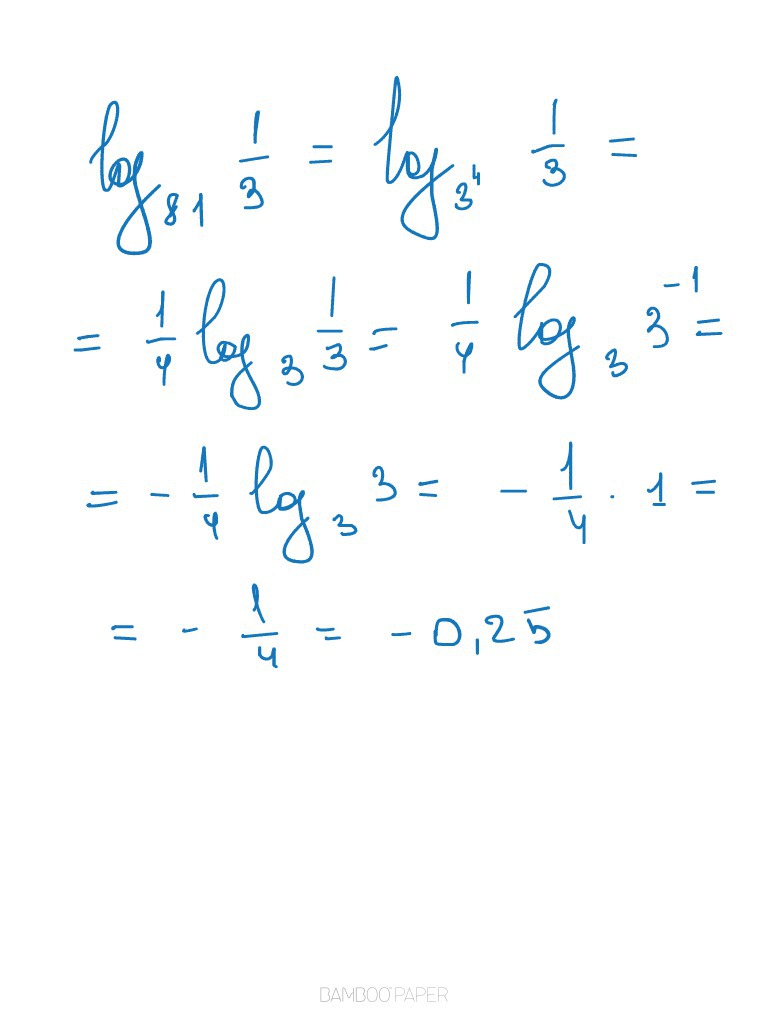 log₈₁ 1/3 = log₃⁴ 1/3 =
= 1/4 log₃ 1/3 = 1/4 log₃ 3⁻¹ =
= - 1/4 log₃ 3 = - 1/4 · 1 =
= - 1/4 = - 0,25
BAMBOO PAPER